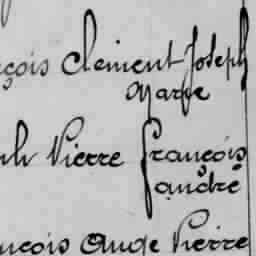 çois Clement Joseph
Marie
ph Pierre François
André
nçois Ange Pierre